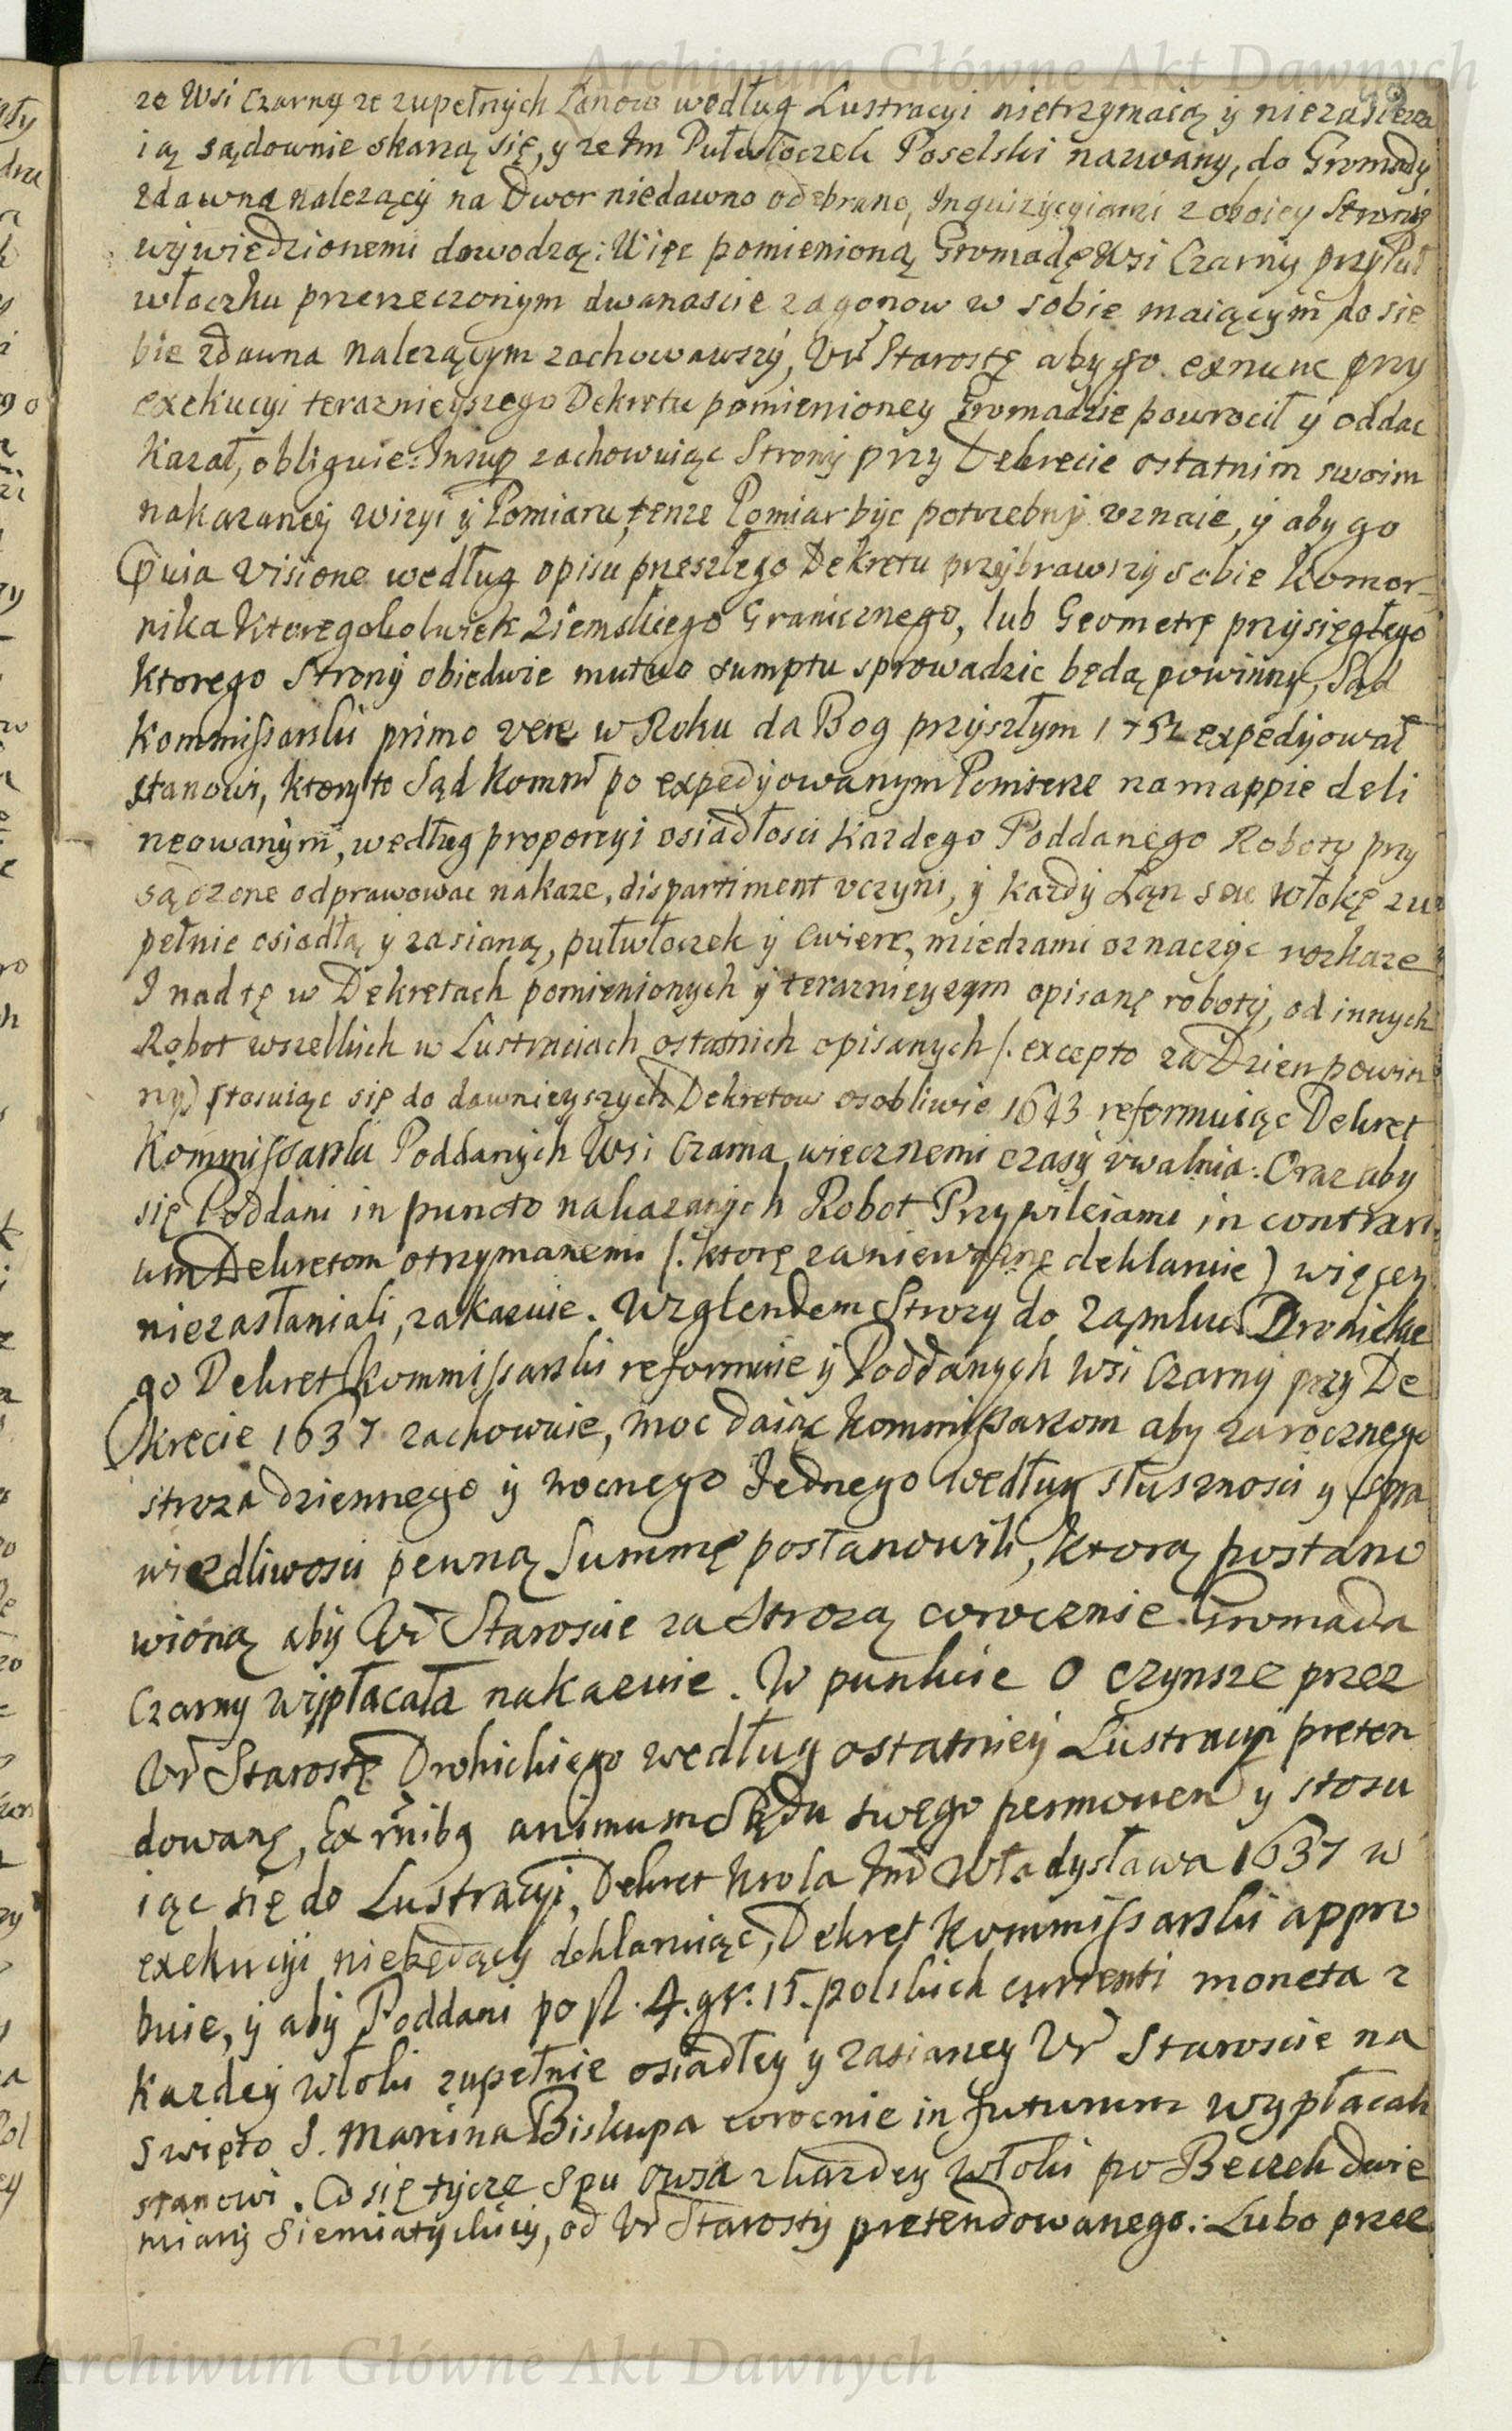 Archiwum Główne Akt Dawnych
ze Wsi Czarny ze zupełnych Łanow według Lustracyi nietrzymaią y niezasiewa
ią sądownie skarzą się, y ze Im Pułwłoczek Poselski nazwany, do Gromady
zdawna nalezący na Dwor niedawno odebrano, Inquizycyiami z oboiey Strony
wywiedzionemi dowodzą: Więc pomienioną Gromadę Wsi Czarny przy Puł
włoczku przerzeczonym dwanascie zagonow w sobie maiącym do sie
bie zdawna nalezącym zachowawszy, Ur Starostę aby go exnunc przy
exekucyi teraznieyszego Dekretu pomienioney Gromadzie powrocił y oddac
kazał, obliguie: Insup zachowuiąc Strony przy Dekrecie ostatnim swoim
nakazaney wizyi y Pomiaru, tenze Pomiar byc potrzebny uznaie, y aby go
Praevia Visione według opisu przeszłego Dekretu przybrawszy sobie Komor-
nika ktoregokolwiek Ziemskiego Granicznego, lub Geometrę przysięgłego
ktorego Strony obiedwie mutuo sumptu sprowadzic będą powinny, Sąd
Kommissarski primo vere w Roku da Bog przyszłym 1752 expedyiował
stanowi, ktory to Sąd Kommi po expedyiowanym Pomierze na mappie deli
neowanym, według proporcyi osiadłosci kazdego Poddanego Roboty przy
sądzone odprawowac nakaze, dispartiment uczyni, y kazdy Łan seu włokę zu
pełnie osiadłą y zasianą, pułwłoczek y cwierc, miedzami oznaczyc rozkaze
I nad tę w Dekretach pomienionych y teraznieyszym opisanę roboty, od innych
Robot wszelkich w Lustraciach ostatnich opisanych /: excepto za Dzien powin
ny) stosuiąc się do dawnieyszych Dekretow osobliwie 1643 reformuiąc Dekret
Kommissarski Poddanych Wsi Czarna wiecznemi czasy uwalnia: Oraz aby
się Poddani in puncto nakazanych Robot Przywileiami in contrari
um Dekretom otrzymanemi /: ktorę zaniewaznę deklaruie) więcey
niezasłaniali, zakazuie. Wzglendem Strozy do Zamku Drohickie
go Dekret Kommissarski reformuie y Poddanych Wsi Czarny przy De
krecie 1637 zachowuie, moc daiąc kommissarzom aby za rocznego
stroza dziennego y nocnego Jednego według słusznosci y spra
wiedliwosci pewną Summę postanowili, ktorą postano
wioną aby Ur Staroscie za Strozą corocznie Gromada
Czarny wypłacała nakazuie. W punkcie O czynsze przez
Ur Starostę Drohickiego według ostatniey Lustracyi preten
dowanę, Ex rnibq animum Sądu swego permoven y stosu
iąc się do Lustracyi, Dekret Krola Jmi Władysława 1637 w
exekucyi niebędący deklaruiąc, Dekret Kommissarski appro
buie, y aby Poddani po fl. 4. gr. 15. polskich currenti moneta z
kazdey włoki zupełnie osiadłey y zasianey Ur Staroscie na
swięto S. Marcina Biskupa corocnie in futurum wypłacali
stanowi. Co się tycze Spu Owsa z kazdey włoki po Beczek dwie
miary Siemiatyckiey, od Ur Starosty pretendowanego: Lubo prze
Archiwum Główne Akt Dawnych